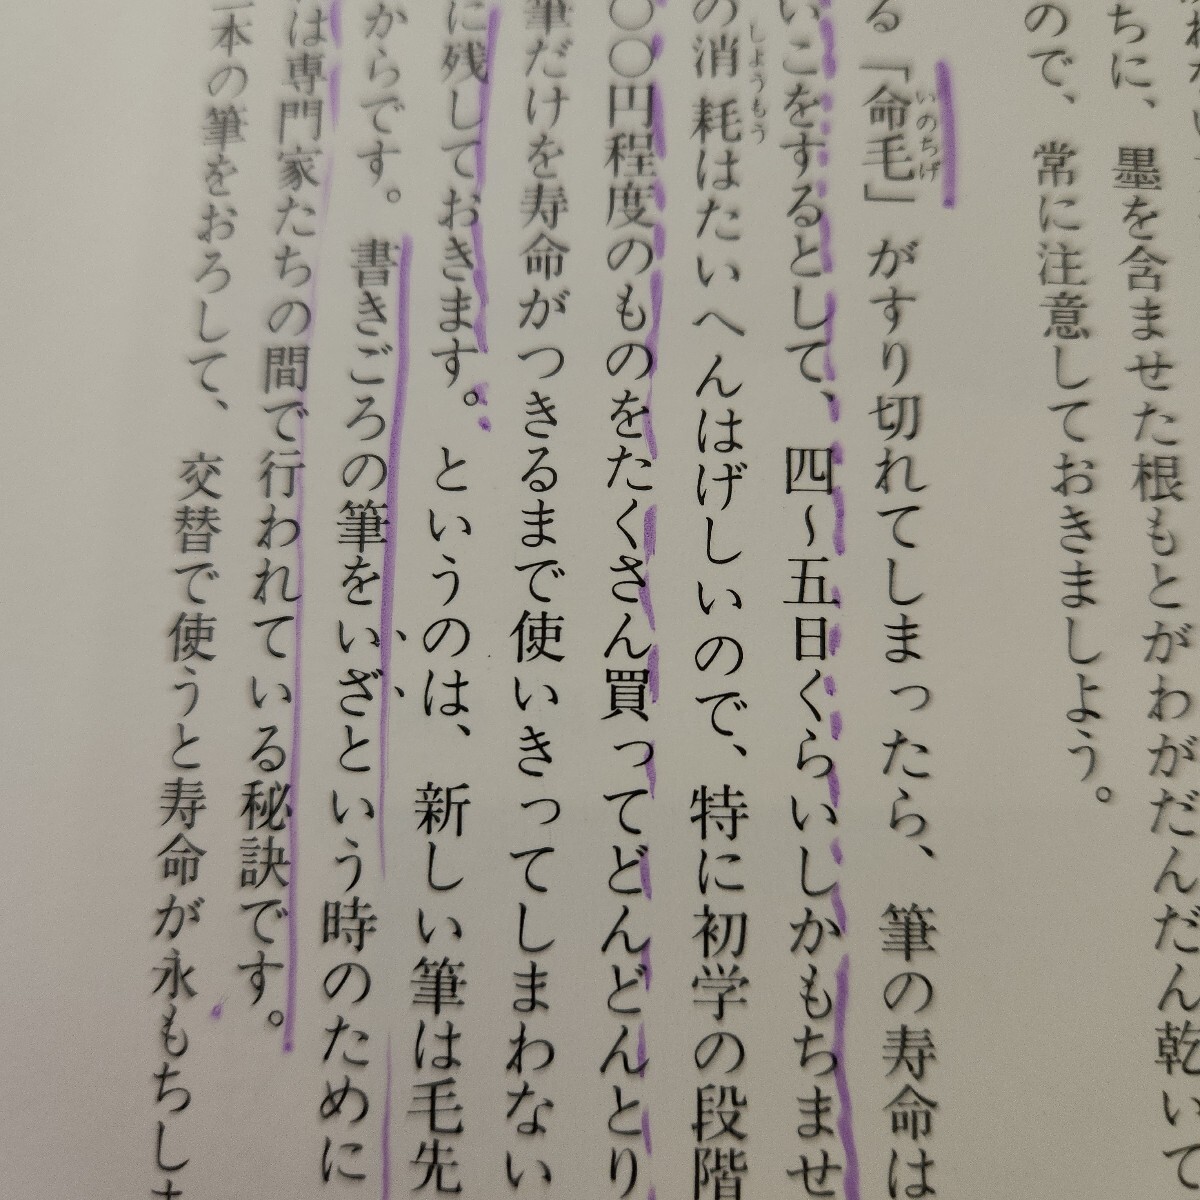 ちに、墨を含ませた根もとがわがだんだん乾いて
ので、常に注意しておきましょう。
る「命毛」がすり切れてしまったら、筆の寿命は
いこをするとして、四〜五日くらいしかもちませ
の消耗はたいへんはげしいので、特に初学の段階
〇〇円程度のものをたくさん買ってどんどんとり
筆だけを寿命がつきるまで使いきってしまわない
に残しておきます。というのは、新しい筆は毛先
からです。書きごろの筆をいざという時のために
は専門家たちの間で行われている秘訣です。
本の筆をおろして、交替で使うと寿命が永もちしま